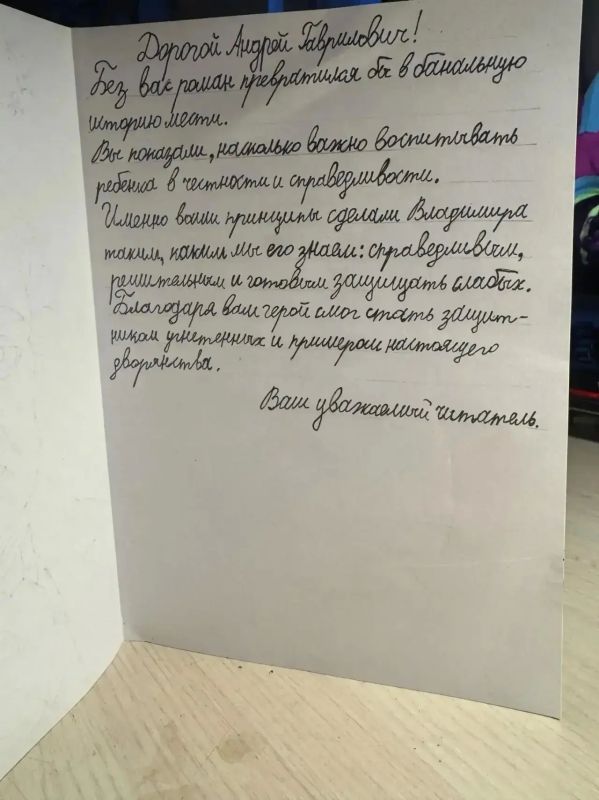 Дорогой Андрей Гаврилович!
Без вас роман превратился бы в банальную
историю мести.
Вы показали, насколько важно воспитывать
ребенка в честности и справедливости.
Именно ваши принципы сделали Владимира
таким, каким мы его знаем: справедливым,
решительным и готовым защищать слабых.
Благодаря вам герой смог стать защит-
ником угнетенных и примером настоящего
дворянства.
Ваш уважаемый читатель.